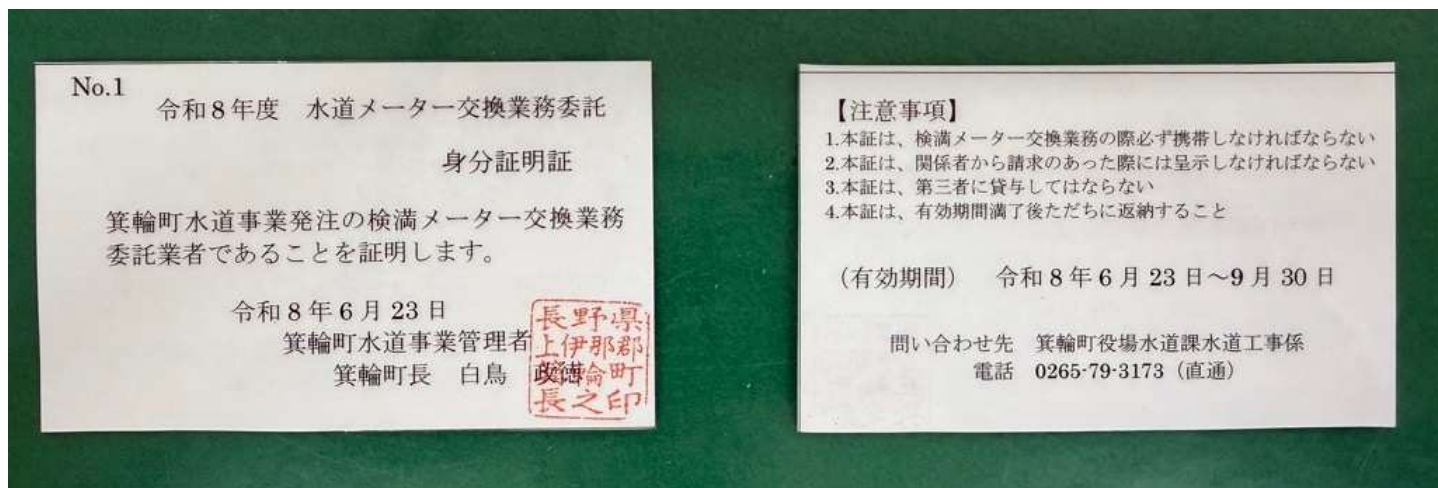 No.1
令和8年度 水道メーター交換業務委託
身分証明証
箕輪町水道事業発注の検満メーター交換業務
委託業者であることを証明します。
令和8年6月23日
箕輪町水道事業管理者
箕輪町長 白鳥 政徳
長野県
上伊那郡
箕輪町
長之印
【注意事項】
1.本証は、検満メーター交換業務の際必ず携帯しなければならない
2.本証は、関係者から請求のあった際には呈示しなければならない
3.本証は、第三者に貸与してはならない
4.本証は、有効期間満了後ただちに返納すること
（有効期間） 令和8年6月23日～9月30日
問い合わせ先 箕輪町役場水道課水道工事係
電話 0265-79-3173（直通）